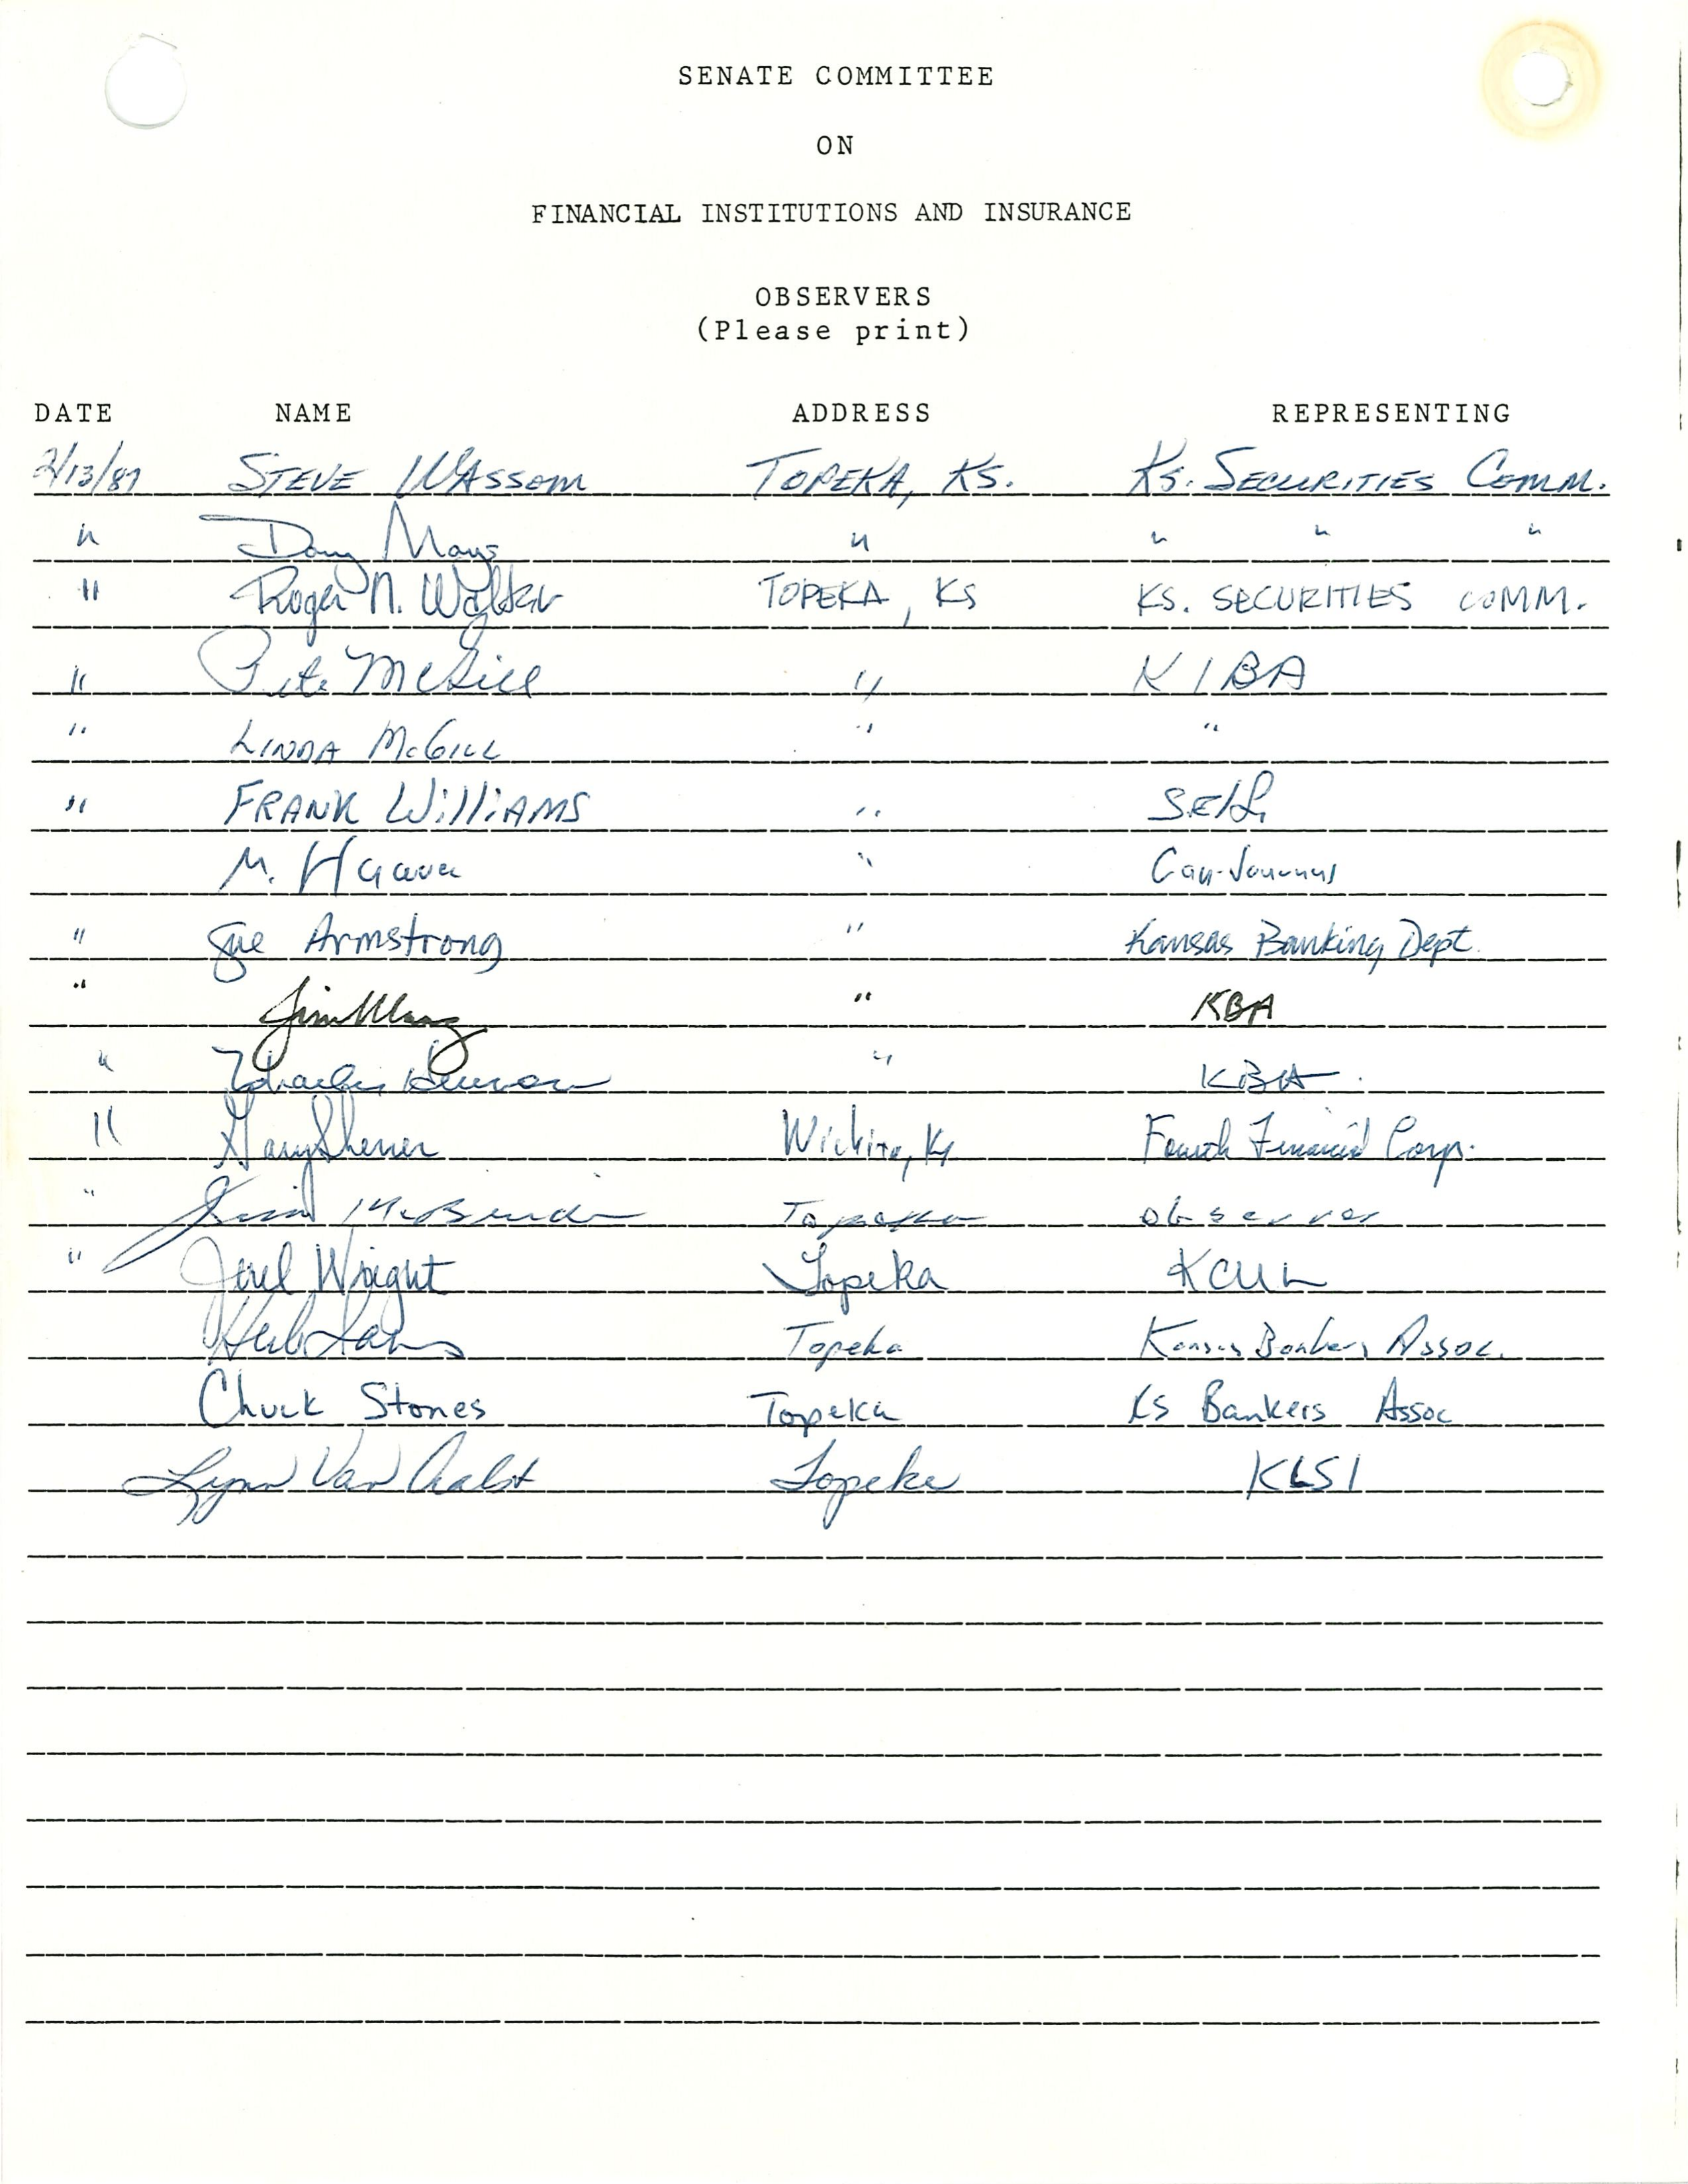 SENATE COMMITTEE
ON
FINANCIAL INSTITUTIONS AND INSURANCE
OBSERVERS
(Please print)
DATE NAME ADDRESS REPRESENTING
2/13/87 STEVE WASSOM TOPEKA, KS. KS. SECURITIES COMM.
" Doug Mays " " " "
" Roger N. Walter TOPEKA, KS KS. SECURITIES COMM.
" Pete McGill " KIBA
" LINDA McGILL " "
" FRANK WILLIAMS "
M. "
" Sue Armstrong " Kansas Banking Dept.
" Jim Maag " KBA
" " KBA
" Gary Sherrer Wichita, Ks Fourth Financial Corp.
" Topeka observer
" Jerel Wright Topeka KCUL
Topeka Kansas Bankers Assoc.
Chuck Stones Topeka KS Bankers Assoc
Lynn Van Aalst Topeka KLSI